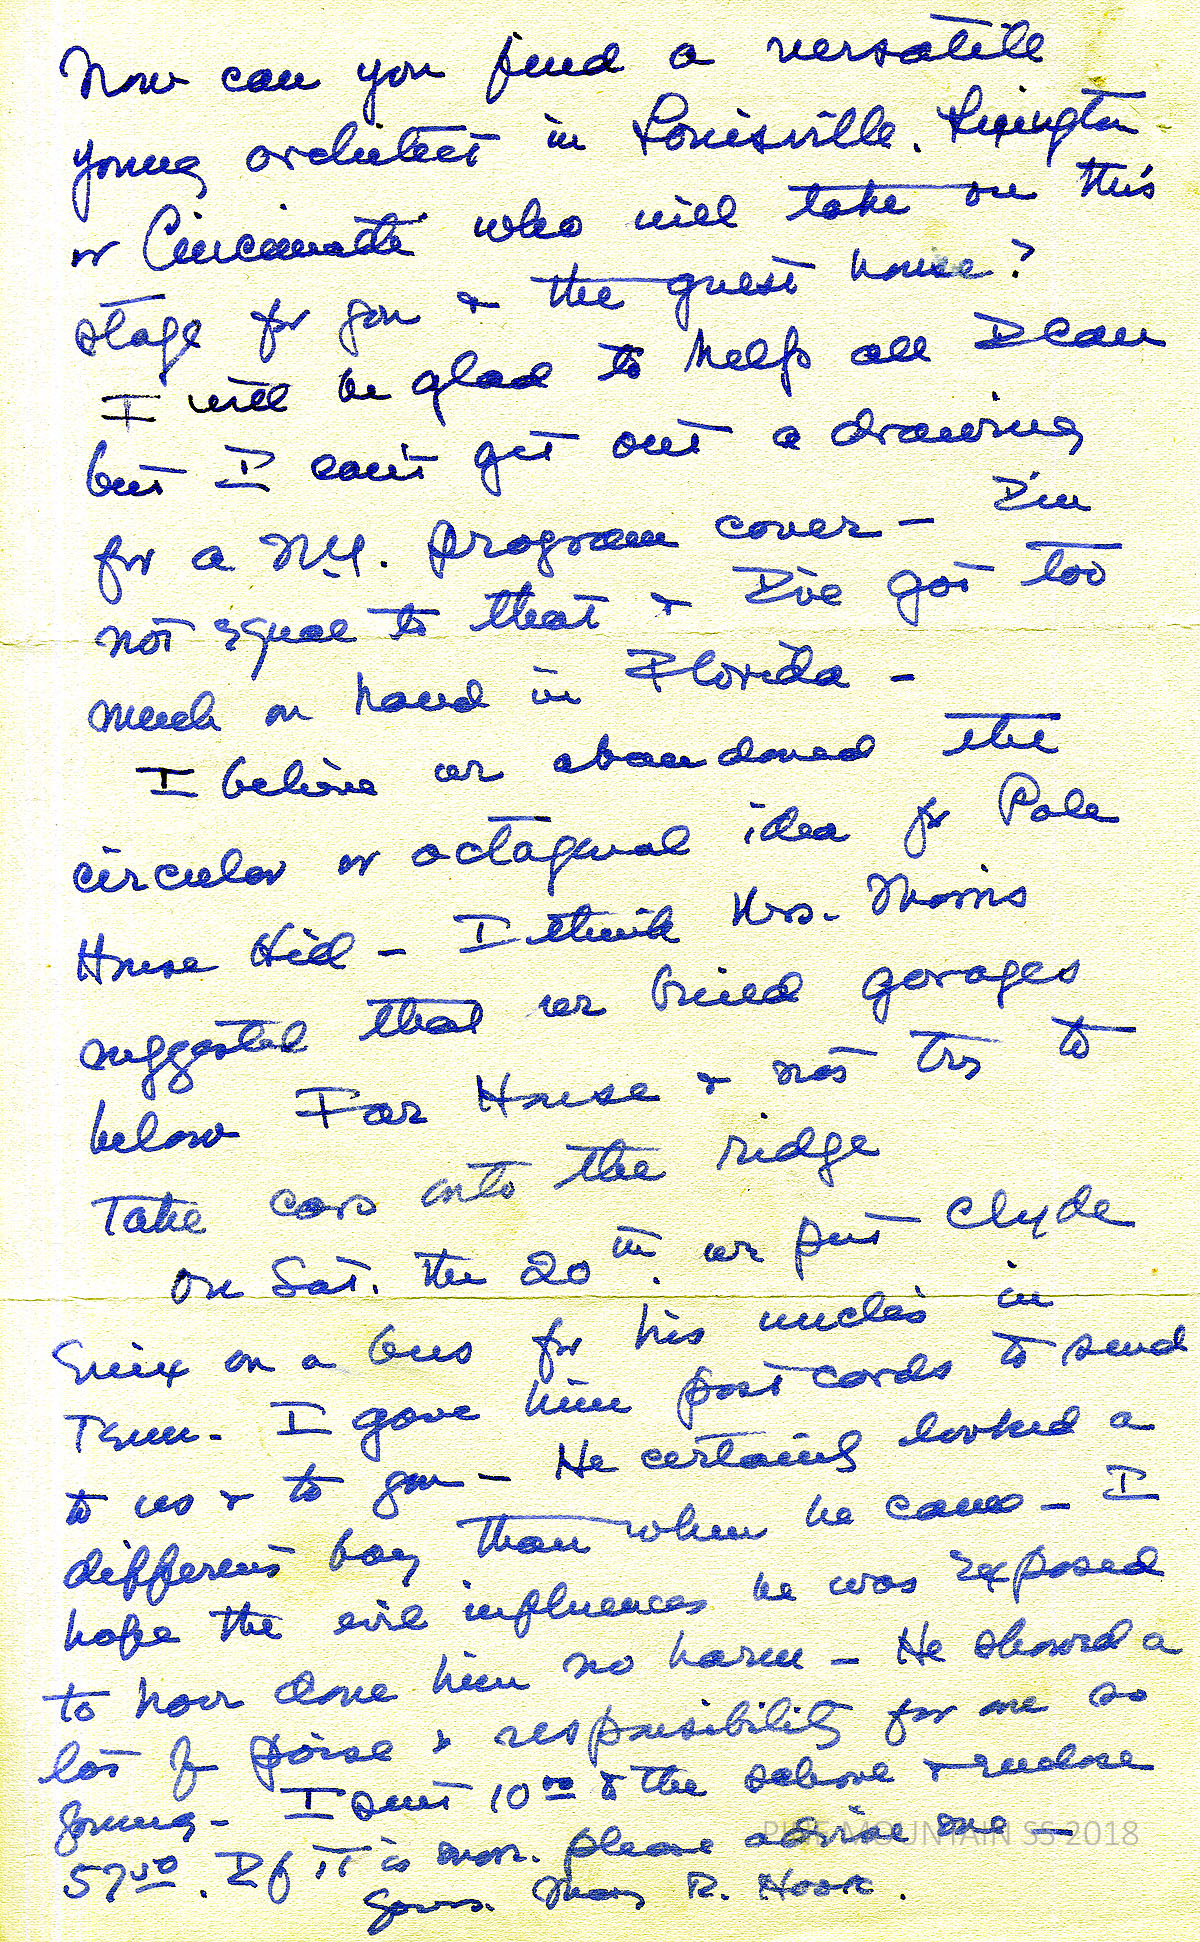 Now can you find a versatile
young architect in Louisville, Lexington
or Cincinnati who will take on this
stage for you & the guest house?
I will be glad to help all I can
but I can't get out a drawing
for a N.Y. program cover – I'm
not equal to that & I've got too
much on hand in Florida –
I believe we abandoned the
circular or octagonal idea for Pole
House Hill – I think Mrs. Morris
suggested that we build garages
below Far House & not try to
take cars onto the ridge
On Sat. the 20th. we put Clyde
on a bus for his uncles in
Tenn. I gave him post cards to send
to us & to you – He certainly looked a
different boy than when he came – I
hope the evil influences he was exposed
to have done him no harm – He showed a
lot of poise & responsibility for one so
young – I sent 10.00 to the school & enclose
57.50. If it is more please advise me –
Yours. Mary R. Hook.
PINE MOUNTAIN SS 2018